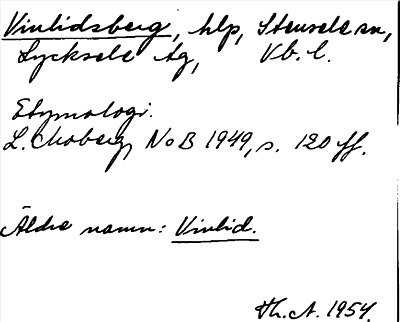 Vinlidsberg, hlp, Stensele sn,
Lycksele tg, Vb. l.
Etymologi.
L. Moberg, NoB 1949, s. 120 ff.
Äldre namn: Vinlid.
Th. A. 1954.